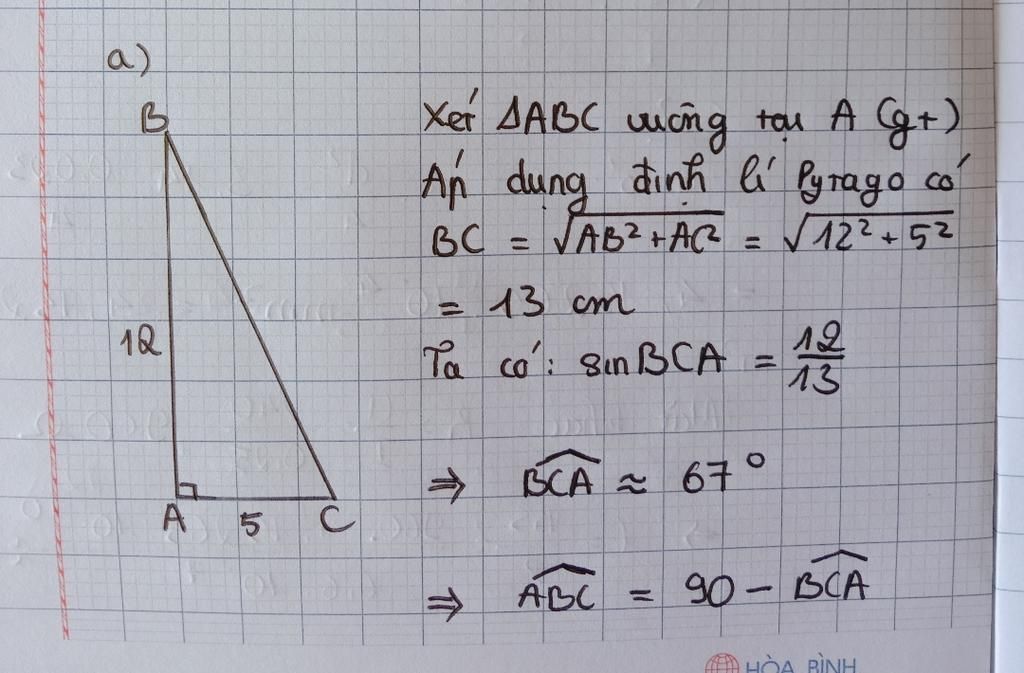 a)
B
12
A
5
C
Xét ΔABC vuông tại A (gt)
Áp dụng định lí Pytago có
BC = √AB² + AC² = √12² + 5²
= 13 cm
Ta có: sin BCA = 12/13
⇒ BCA ≈ 67°
⇒ ABC = 90 - BCA
HÒA BÌNH